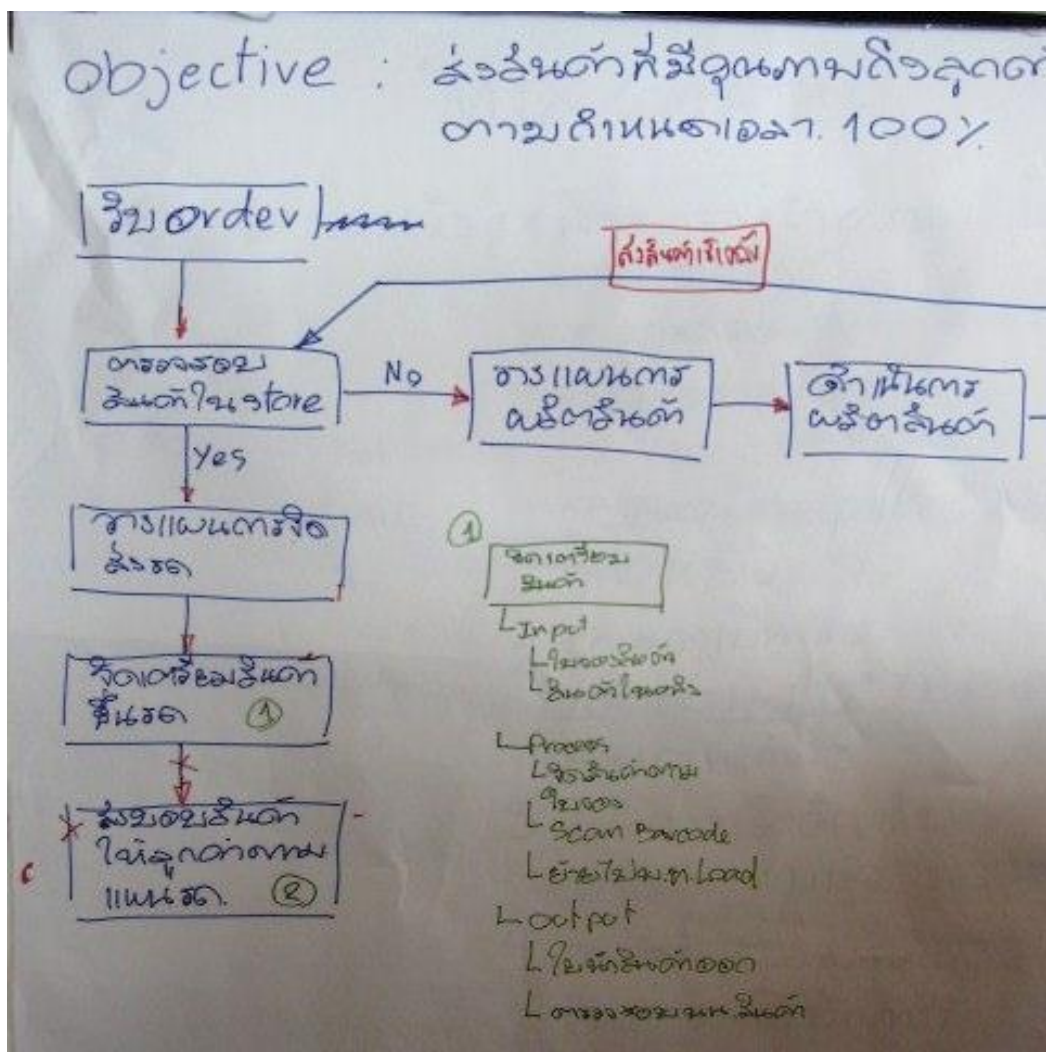 objective : ส่งสินค้าที่มีคุณภาพถึงลูกค้า
ตามกำหนดเวลา. 100%
รับ order
ส่งสินค้าเข้าคลัง
ตรวจสอบ
สินค้าใน store
No
วางแผนการ
ผลิตสินค้า
ดำเนินการ
ผลิตสินค้า
Yes
วางแผนการจัด
ส่งรถ
จัดเตรียมสินค้า
ขึ้นรถ ①
ส่งมอบสินค้า
ให้ลูกค้าตาม
แผนรถ. ②
①
จัดเตรียม
สินค้า
Input
ใบจองสินค้า
สินค้าในคลัง
Process
จัดสินค้าตาม
ใบจอง
Scan Barcode
ย้ายไป Load
output
ใบนำสินค้าออก
ตรวจสอบ สินค้า